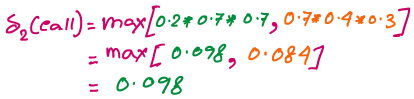 δ₂(call) = max[0.2*0.7*0.7, 0.7*0.4*0.3]
= max[0.098, 0.084]
= 0.098